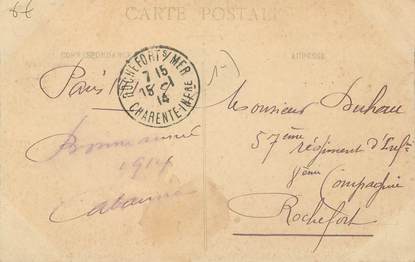 6f
CARTE POSTALE
CORRESPONDANCE
ADRESSE
ROCHEFORT S/ MER
7 15
15 - 1
14
CHARENTE INFRE
Paris
Bonne année
1914
Cabanne
Monsieur Duhau
57ème régiment d'Infie
8ème Compagnie
Rochefort